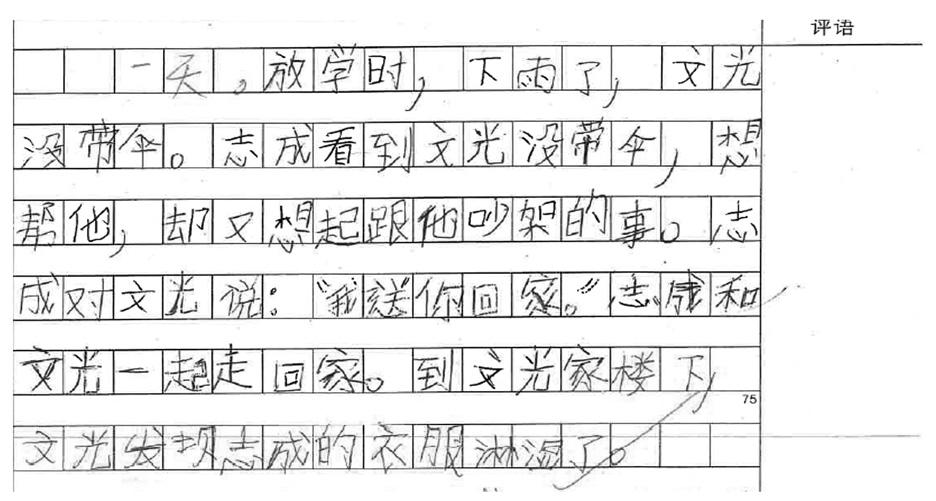 评语
一天。放学时，下雨了，文光
没带伞。志成看到文光没带伞，想
帮他，却又想起跟他吵架的事。志
成对文光说：“我送你回家。”志成和
文光一起走回家。到文光家楼下，
75
文光发现志成的衣服淋湿了。